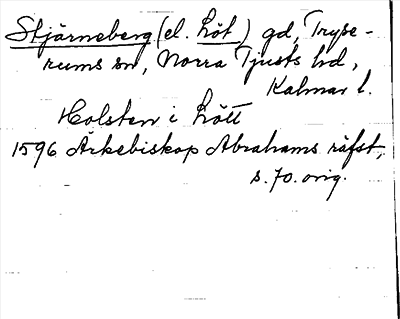 Stjärneberg (el. Löt) gd, Tryse-
rums sn, Norra Tjusts hd,
Kalmar l.
Holsten i Lött
1596 Ärkebiskop Abrahams räfst,
s. 70. orig.